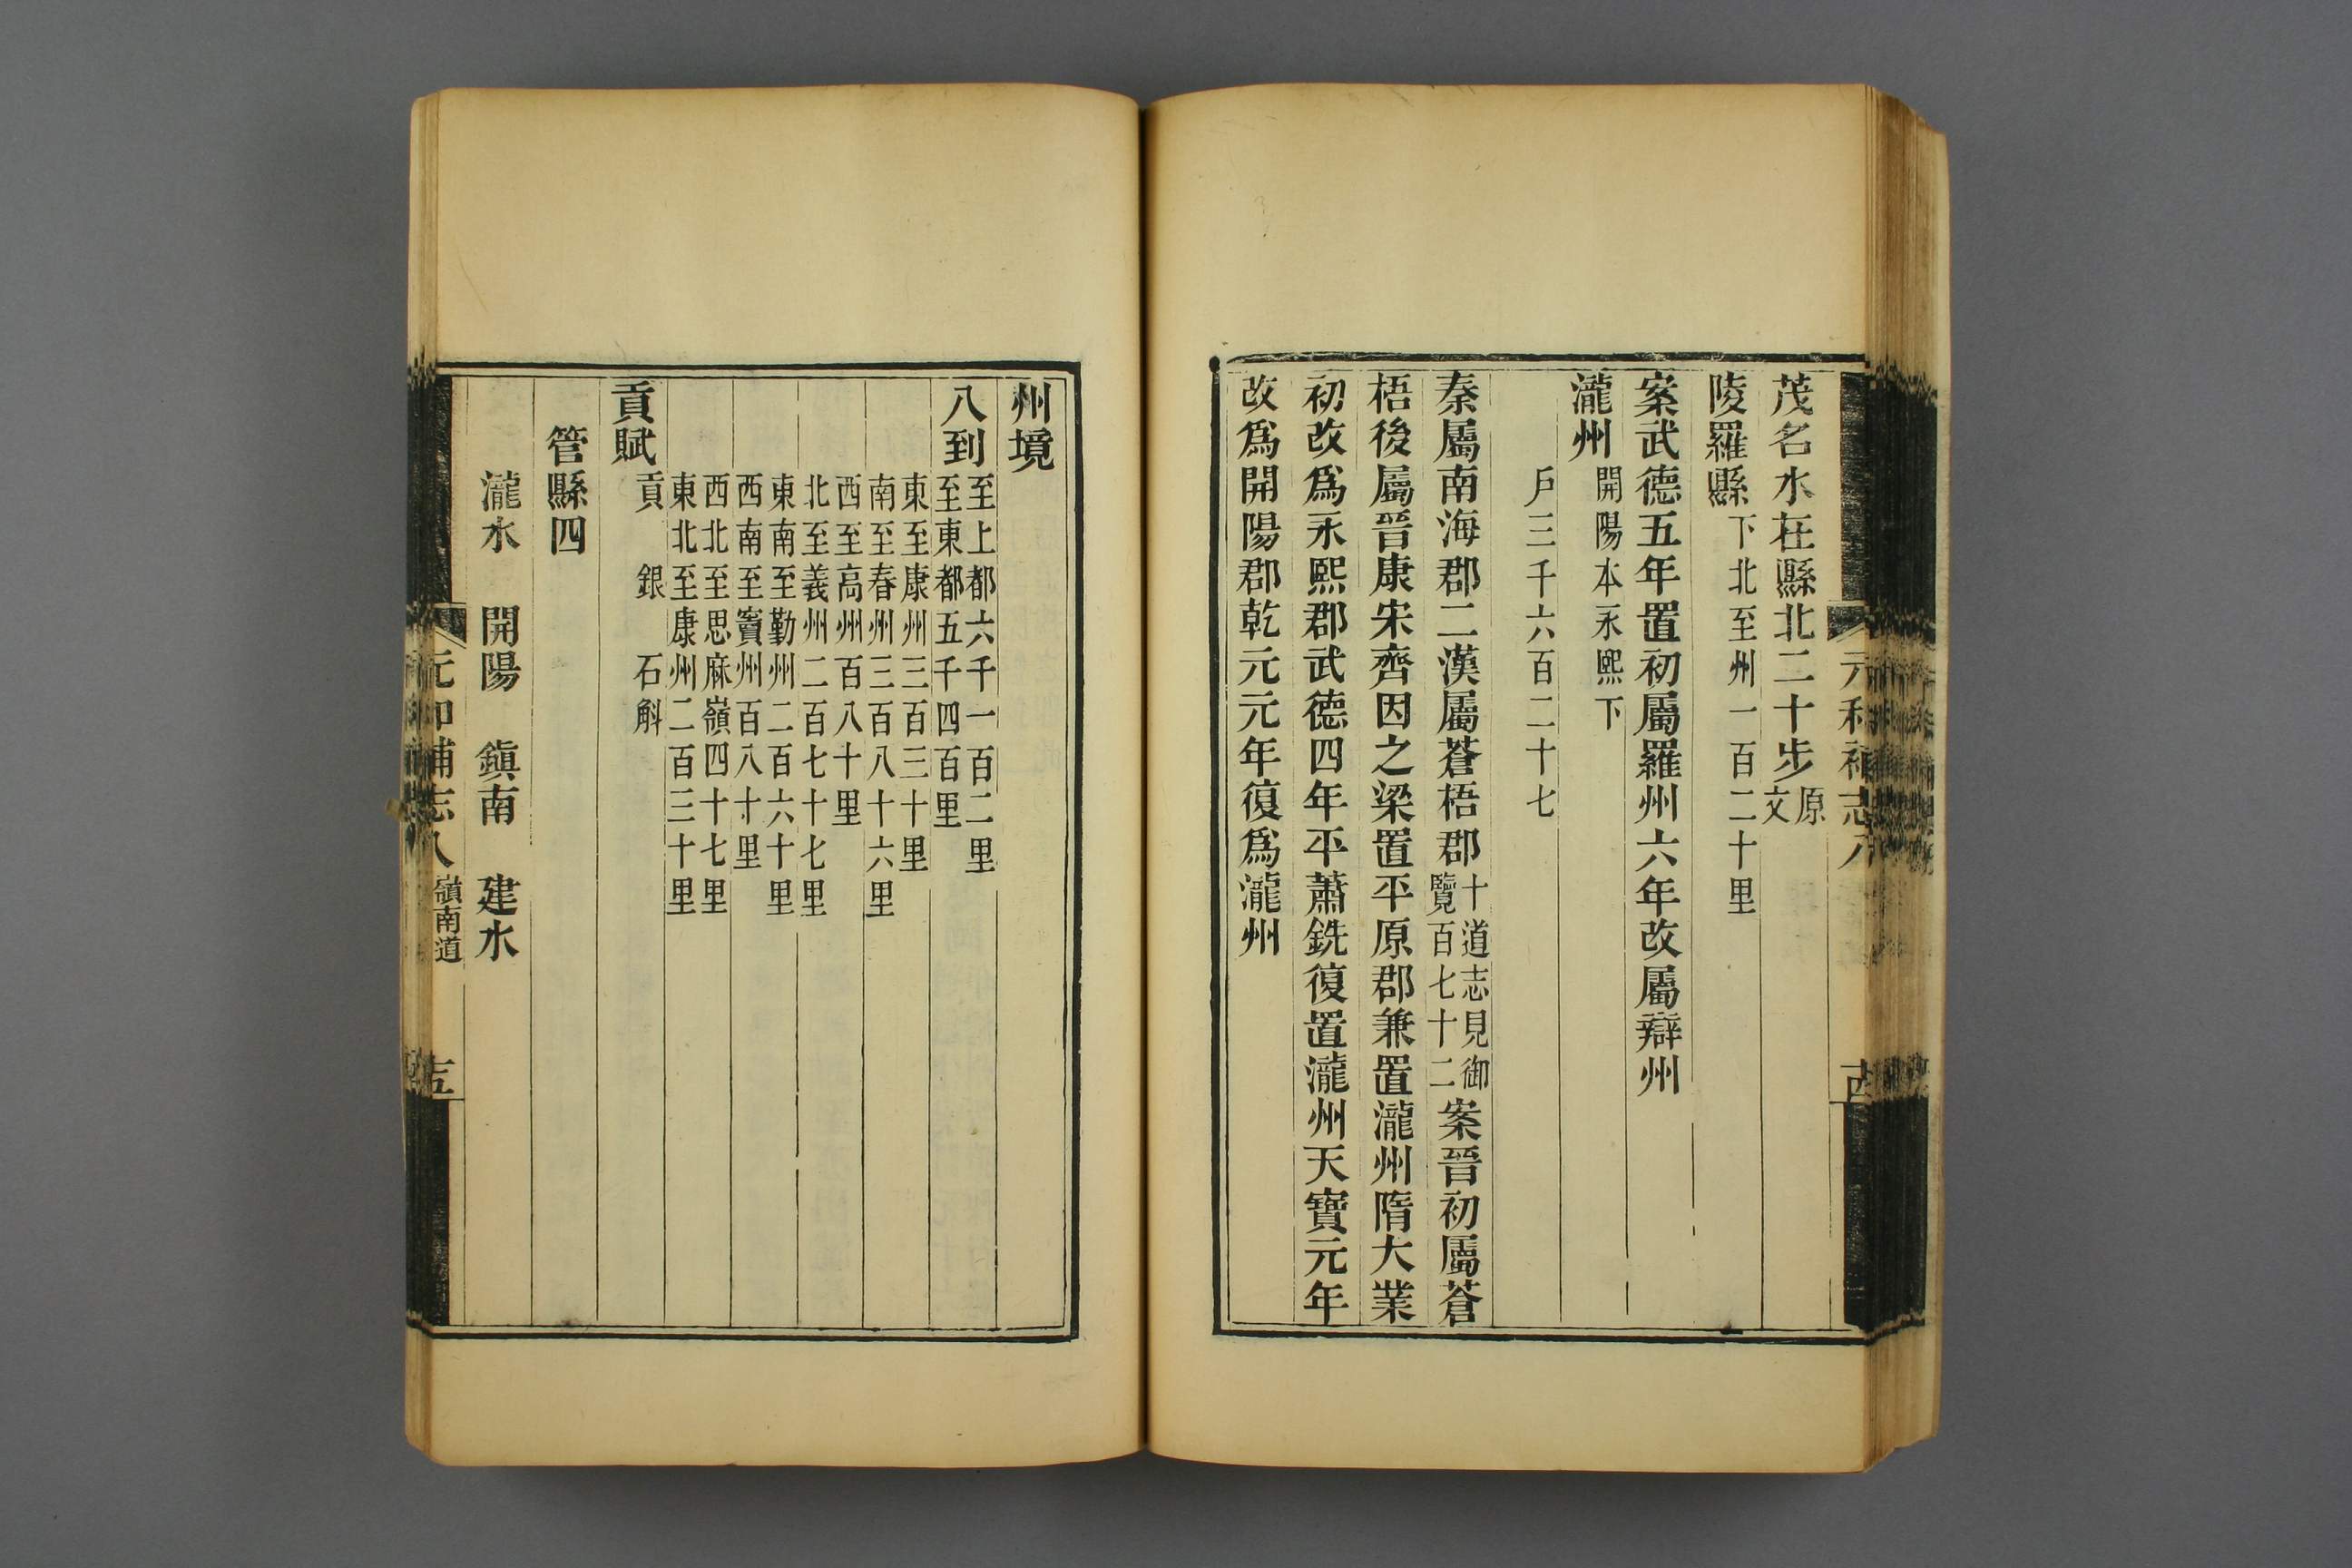 元和補志八
茂名水在縣北二十步原文
陵羅縣下北至州一百二十里
案武德五年置初屬羅州六年改屬辯州
瀧州開陽本永熙下
戶三千六百二十七
秦屬南海郡二漢屬蒼梧郡十道志見御覽百七十二案晉初屬蒼
梧後屬晉康宋齊因之梁置平原郡兼置瀧州隋大業
初改爲永熙郡武德四年平蕭銑復置瀧州天寶元年
改爲開陽郡乾元元年復爲瀧州
州境
八到至上都六千一百二里
至東都五千四百里
東至康州三百三十里
南至春州三百八十六里
西至高州百八十里
北至義州二百七十七里
東南至勤州二百六十里
西南至竇州百八十里
西北至思麻嶺四十七里
東北至康州二百三十里
貢賦貢 銀 石斛
管縣四
瀧水 開陽 鎮南 建水
元和補志八 嶺南道